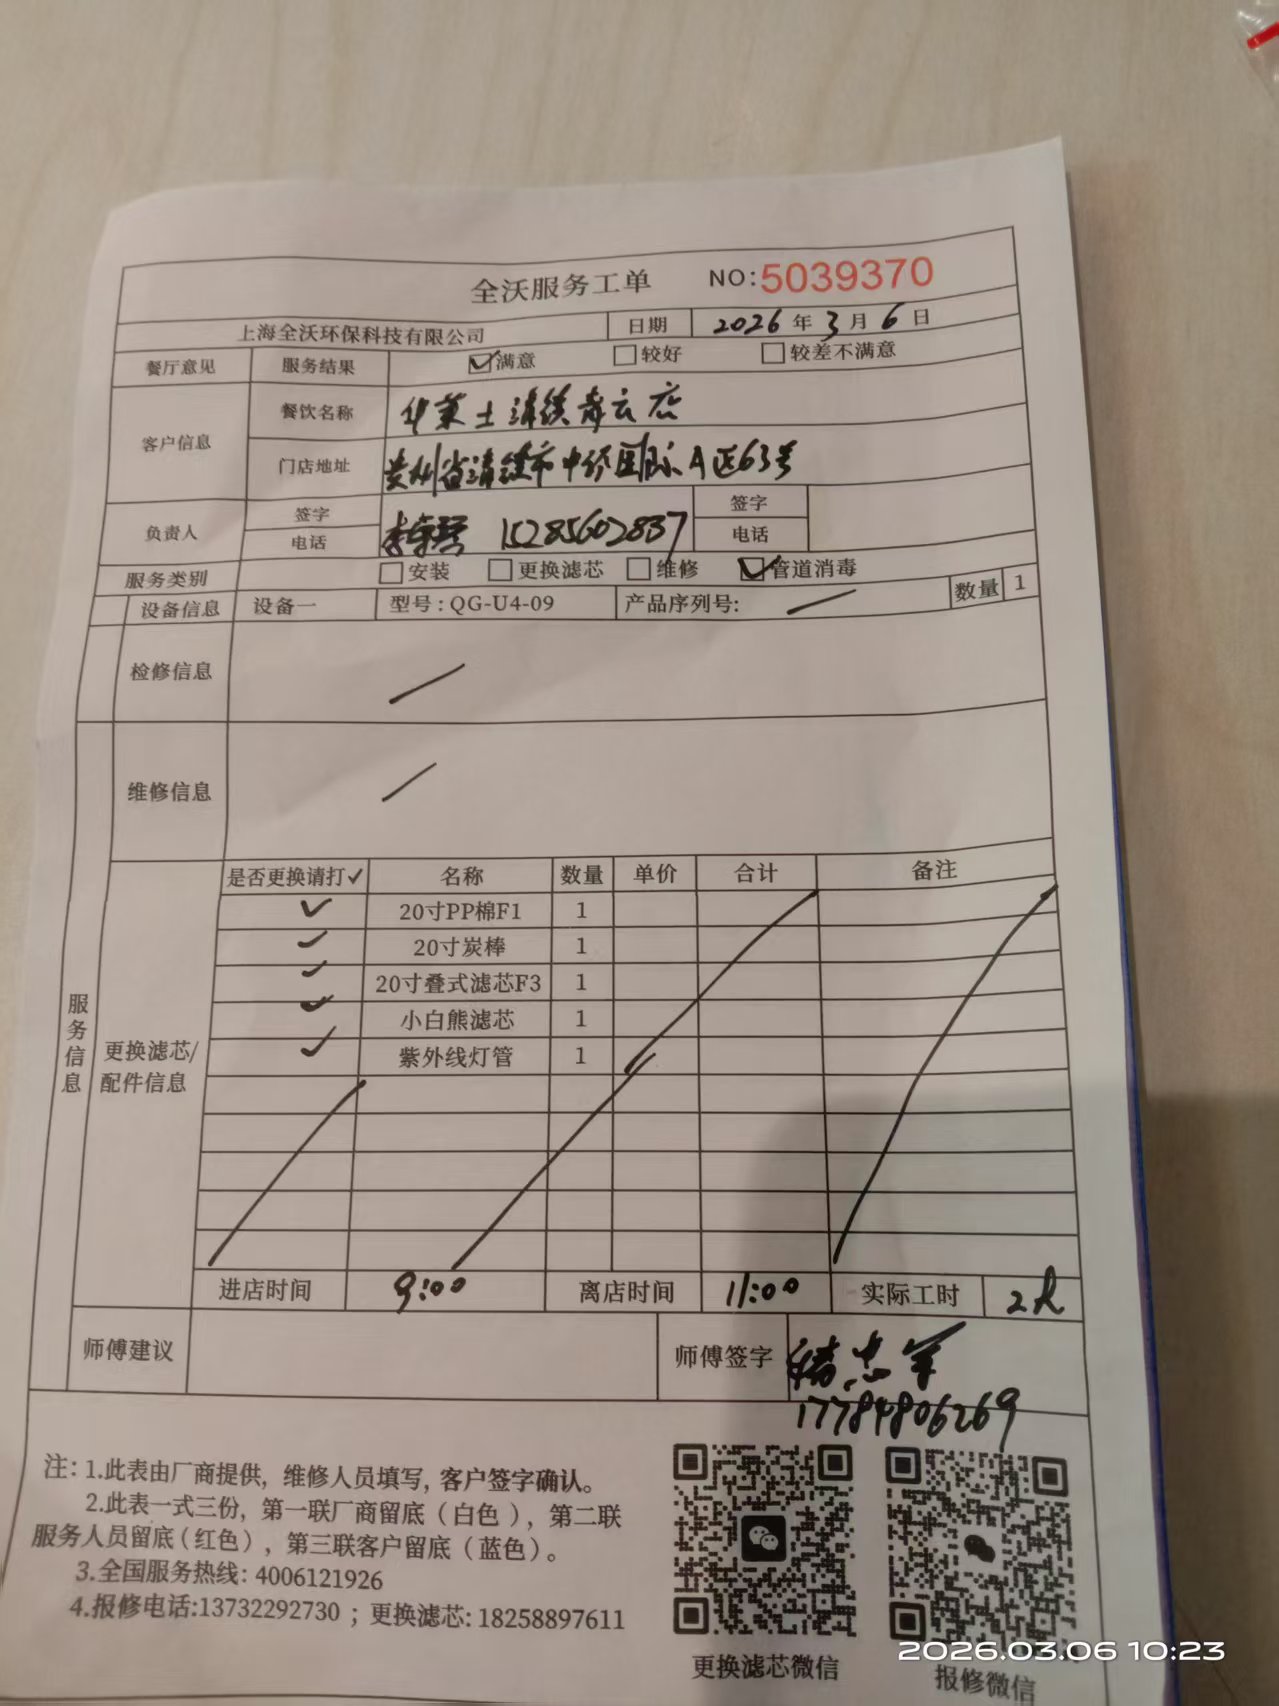 全沃服务工单 NO:5039370
上海全沃环保科技有限公司 日期 2026年3月6日
餐厅意见 服务结果 ☑满意 □较好 □较差不满意
客户信息 餐饮名称 华莱士清镇青云店
门店地址 贵州省清镇市中侨国际A区63号
负责人 签字 电话 李 15285602837 签字 电话
服务类别 □安装 □更换滤芯 □维修 ☑管道消毒
设备信息 设备一 型号:QG-U4-09 产品序列号: 数量 1
检修信息
维修信息
服务信息
更换滤芯/配件信息
是否更换请打✓ 名称 数量 单价 合计 备注
✓ 20寸PP棉F1 1
✓ 20寸炭棒 1
✓ 20寸叠式滤芯F3 1
✓ 小白熊滤芯 1
✓ 紫外线灯管 1
进店时间 9:00 离店时间 11:00 实际工时 2h
师傅建议 师傅签字 志军
17784806269
注:1.此表由厂商提供, 维修人员填写, 客户签字确认。
2.此表一式三份, 第一联厂商留底(白色), 第二联
服务人员留底(红色), 第三联客户留底(蓝色)。
3.全国服务热线: 4006121926
4.报修电话:13732292730 ; 更换滤芯: 18258897611
更换滤芯微信 报修微信
2026.03.06 10:23